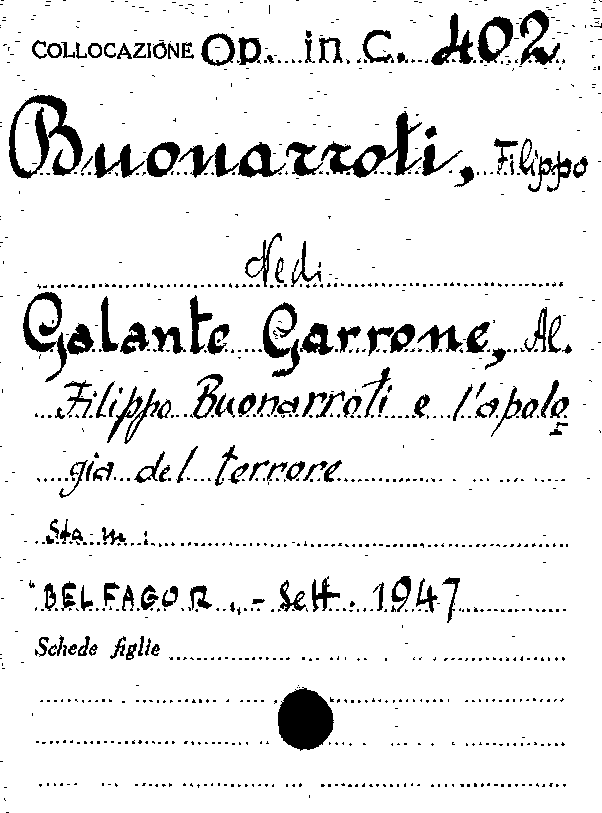 COLLOCAZIONE Op. in C. 402
Buonarroti, Filippo
Vedi
Galante Garrone, Al.
Filippo Buonarroti e l'apolo
gia del terrore
Sta in:
"BELFAGOR". - Sett. 1947
Schede figlie